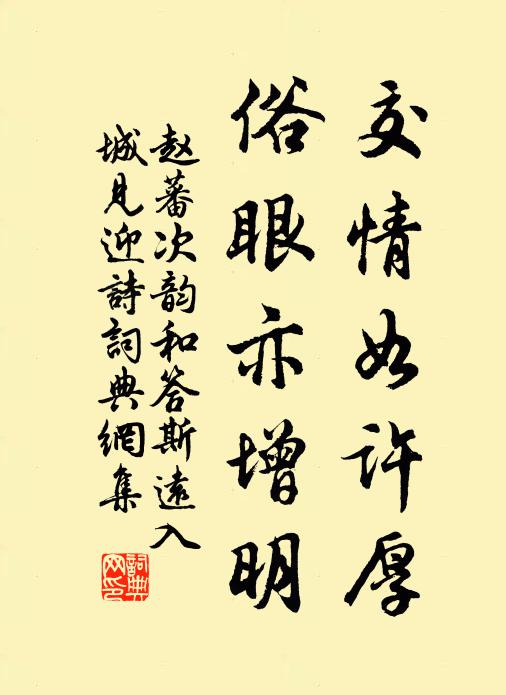 交情如许厚
俗眼亦增明
赵蕃次韵和答斯遠入
城見迎詩詞典網集
詞典
网印